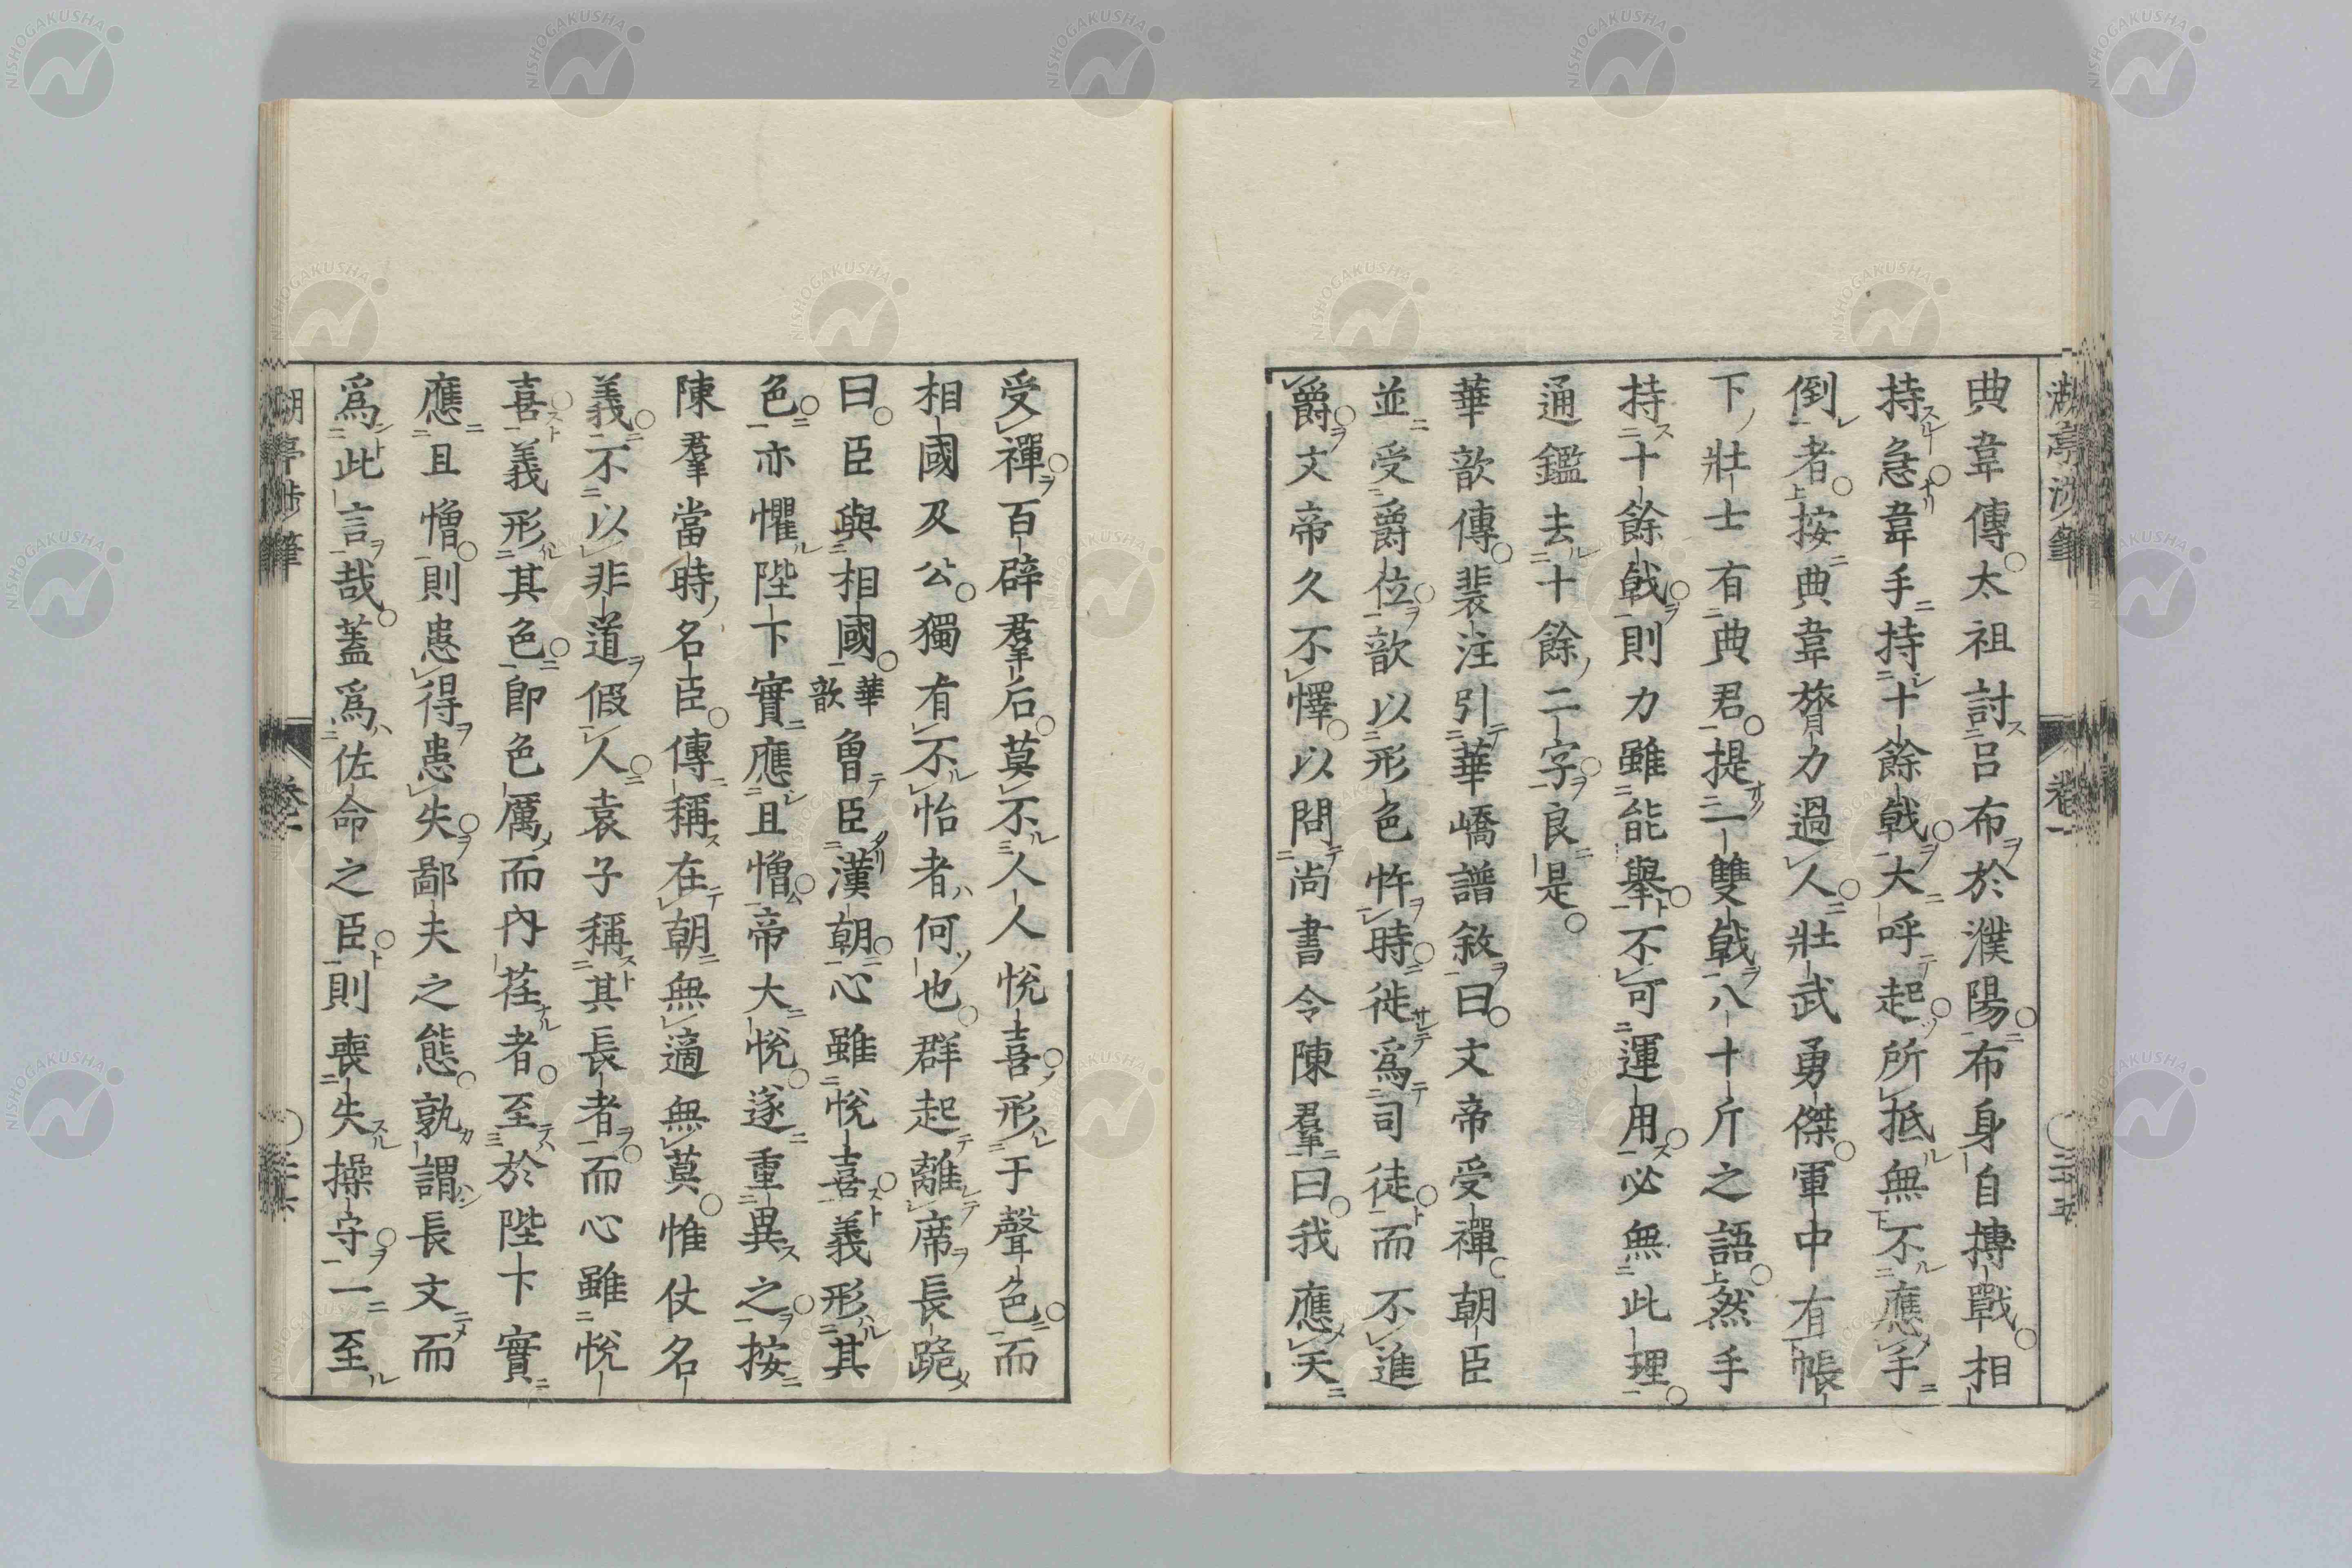 湖亭涉筆
卷一
三十五
典韋傳太祖討呂布於濮陽布身自搏戰相
持急韋手持十餘戟大呼起所抵無不應手
倒者按典韋膂力過人壯武勇傑軍中有帳
下壯士有典君提一雙戟八十斤之語然手
持十餘戟則力雖能舉不可運用必無此理
通鑑去十餘二字良是
華歆傳裴注引華嶠譜敘曰文帝受禪朝臣
並受爵位歆以形色忤時徙爲司徒而不進
爵文帝久不懌以問尚書令陳羣曰我應天
受禪百辟羣后莫不人人悅喜形于聲色而
相國及公獨有不怡者何也群起離席長跪
曰臣與相國華歆曾臣漢朝心雖悅喜義形其
色亦懼陛下實應且憎帝大悅遂重異之按
陳羣當時名臣傳稱在朝無適無莫惟仗名
義不以非道假人袁子稱其長者而心雖悅
喜義形其色卽色厲而內荏者至於陛下實
應且憎則患得患失鄙夫之態孰謂長文而
爲此言哉蓋爲佐命之臣則喪失操守一至
湖亭涉筆
卷一